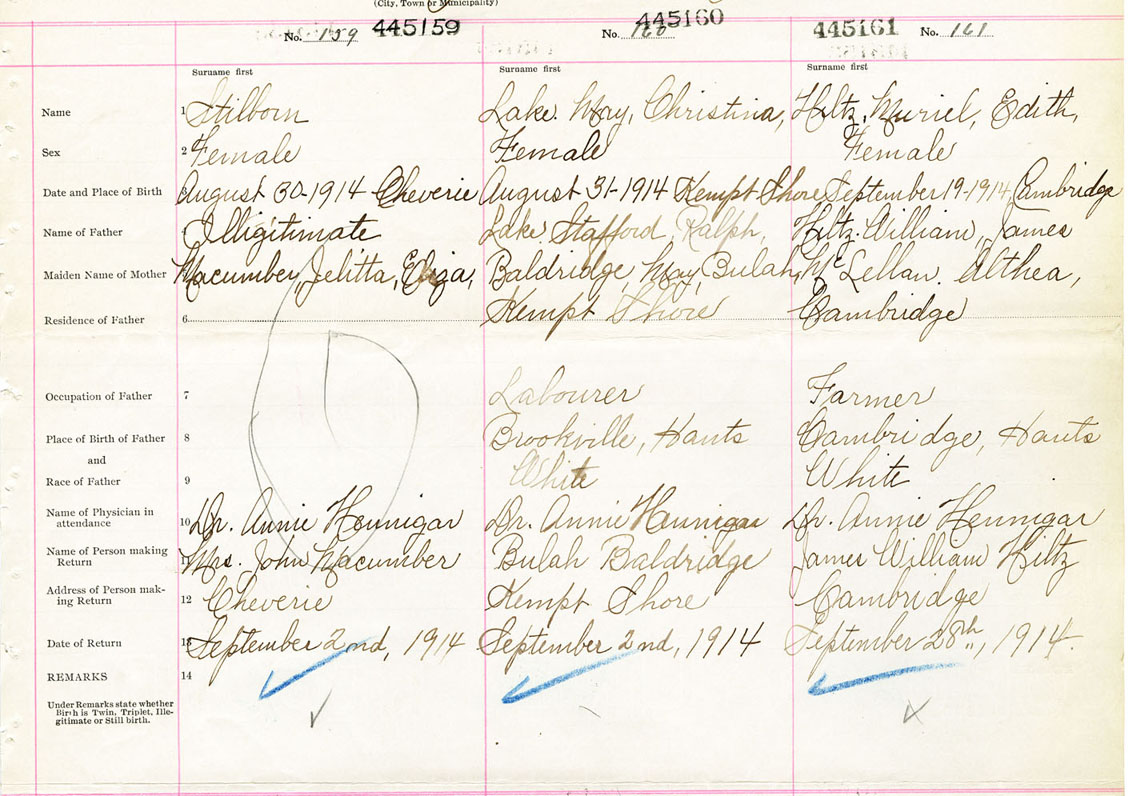 (City, Town or Municipality)
No. 159 445159 No. 160 445160 445161 No. 161
Surname first Surname first Surname first
Name 1 Stilborn Lake. May, Christina, Hiltz, Muriel, Edith,
Sex 2 Female Female Female
Date and Place of Birth 3 August 30-1914 Cheverie August 31-1914 Kempt Shore September 19-1914, Cambridge
Name of Father Illigitimate Lake. Stafford, Ralph, Hiltz. William, James
Maiden Name of Mother Macumber, Jelitta, Eliza, Baldridge, May, Bulah, McLellan. Althea,
Residence of Father 6 Kempt Shore Cambridge
Occupation of Father 7 Labourer Farmer
Place of Birth of Father 8 Brookville, Hants Cambridge, Hants
and
Race of Father 9 White White
Name of Physician in
attendance 10 Dr. Annie Hennigar Dr. Annie Hennigar Dr. Annie Hennigar
Name of Person making
Return 11 Mrs. John Macumber Bulah Baldridge James William Hiltz
Address of Person mak-
ing Return 12 Cheverie Kempt Shore Cambridge
Date of Return 13 September 2nd, 1914 September 2nd, 1914 September 28th, 1914.
REMARKS 14
Under Remarks state whether
Birth is Twin, Triplet, Ille-
gitimate or Still birth.